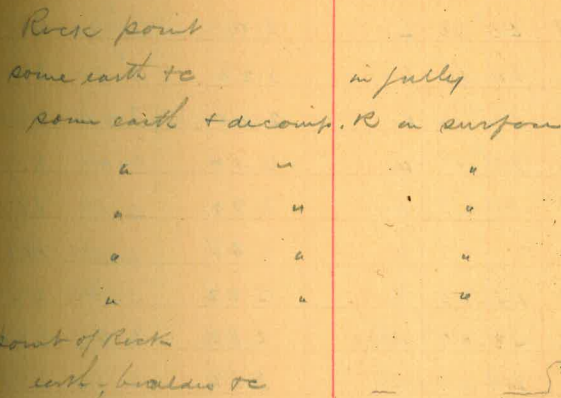 Rock point
some earth +c in gully
some earth + decomp. R on surface
" " "
" " "
" " "
" " "
point of Rock
earth, boulders +c